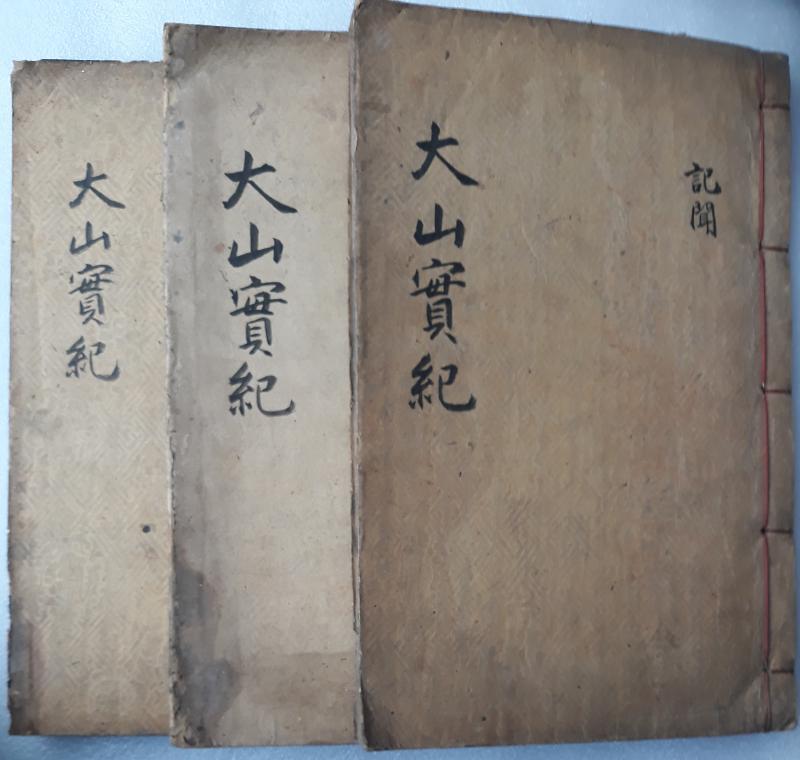 記聞
大山實紀
大山實紀
大山實紀